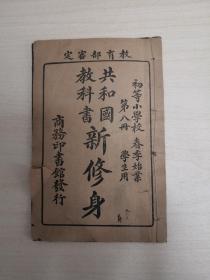 教育部審定
初等小學校 春季始業
第八冊 學生用
共和國
教科書
新修身
商務印書館發行